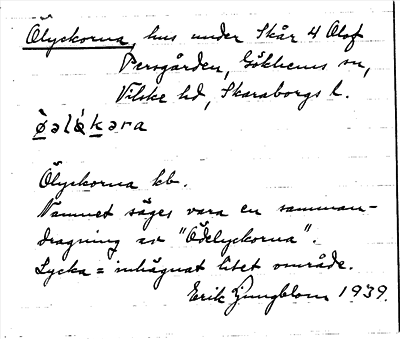 Ölyckorna, hus under Skår 4 Olof
Persgården, Gökhems sn,
Vilske hd, Skaraborgs l.
ø̀əlo̖kəra
Ölyckorna kb.
Namnet säges vara en samman-
dragning av "Ödelyckorna".
Lycka = inhägnat litet område.
Erik Ljungblom 1939.